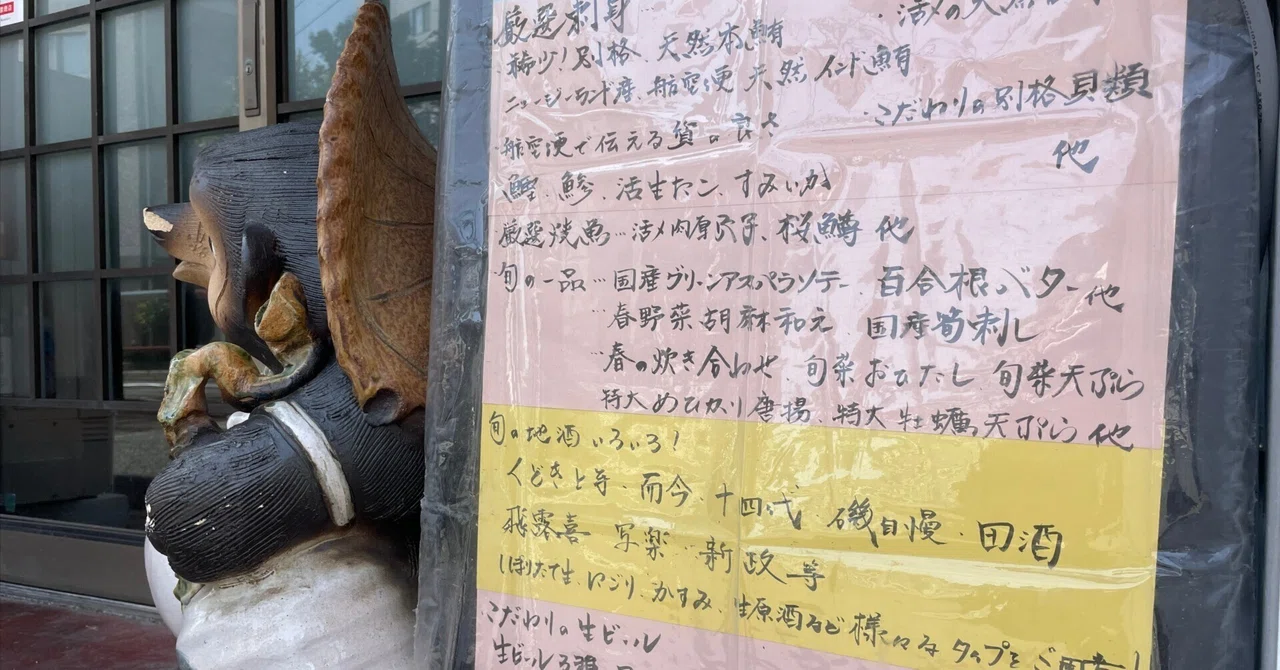 厳選刺身
活〆の天然
稀少!別格 天然本鮪
ニュージーランド産、航空便 天然 インド鮪
こだわりの別格貝類
航空便で伝える質の良さ
他
鰹、鯵、活生たこ、すみいか
厳選焼魚…活〆肉厚穴子、桜鱒 他
旬の一品…国産グリーンアスパラソテー 百合根バター他
…春野菜胡麻和え 国産筍刺し
…春の炊き合わせ、旬菜おひたし 旬菜天ぷら
特大めひかり唐揚、特大牡蠣天ぷら他
旬の地酒いろいろ!
くどき上手、而今、十四代、磯自慢、田酒
飛露喜 写楽、新政等
しぼりたて生、にごり、かすみ、生原酒など様々なタイプをご用意!
こだわりの生ビール
生ビール